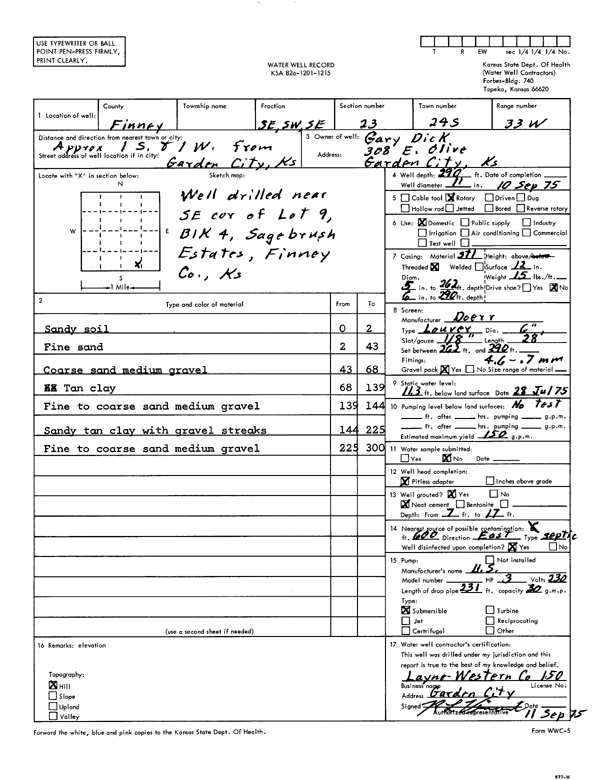 USE TYPEWRITER OR BALL
POINT PEN-PRESS FIRMLY,
PRINT CLEARLY.
WATER WELL RECORD
KSA 82a-1201-1215
T R EW sec 1/4 1/4 1/4 No.
Kansas State Dept. Of Health
(Water Well Contractors)
Forbes-Bldg. 740
Topeka, Kansas 66620
1 Location of well: County Township name Fraction Section number Town number Range number
Finney SE,SW,SE 23 24S 33W
Distance and direction from nearest town or city:
Approx 1 S. & 1 W. from
Street address of well location if in city:
Garden City, Ks
3 Owner of well: Gary Dick
308 E. Olive
Address:
Garden City, Ks
Locate with "X" in section below:
N
W E
X
S
1 Mile
Sketch map:
Well drilled near
SE cor of Lot 9,
Blk 4, Sagebrush
Estates, Finney
Co., Ks
2 Type and color of material From To
Sandy soil 0 2
Fine sand 2 43
Coarse sand medium gravel 43 68
Tan clay 68 139
Fine to coarse sand medium gravel 139 144
Sandy tan clay with gravel streaks 144 225
Fine to coarse sand medium gravel 225 300
(use a second sheet if needed)
16 Remarks: elevation
Topography:
X Hill
Slope
Upland
Valley
4 Well depth 290 ft. Date of completion
Well diameter 11 in. 10 Sep 75
5 Cable tool X Rotary Driven Dug
Hollow rod Jetted Bored Reverse rotary
6 Use: X Domestic Public supply Industry
Irrigation Air conditioning Commercial
Test well
7 Casing: Material Stl Height: above/below
Threaded X Welded Surface 12 in.
Diam. Weight 15 lbs./ft.
5 in. to 262 ft. depth Drive shoe? Yes X No
6 in. to 290 ft. depth
8 Screen:
Manufacturer Doerr
Type Louver Dia. 6"
Slot/gauze 1/8" Length 28'
Set between 262 ft. and 290 ft.
Fittings: 4.6-.7 mm
Gravel pack X Yes No Size range of material
9 Static water level:
113 ft. below land surface Date 28 Jul 75
10 Pumping level below land surfaces: No test
ft. after hrs. pumping g.p.m.
ft. after hrs. pumping g.p.m.
Estimated maximum yield 150 g.p.m.
11 Water sample submitted:
Yes X No Date
12 Well head completion:
X Pitless adapter Inches above grade
13 Well grouted? X Yes No
X Neat cement Bentonite
Depth: From 7 ft. to 17 ft.
14 Nearest source of possible contamination: X
ft. 600 Direction East Type septic
Well disinfected upon completion? X Yes No
15 Pump: Not installed
Manufacturer's name U.S.
Model number HP 3 Volts 230
Length of drop pipe 231 ft. capacity 30 g.m.p.
Type:
X Submersible Turbine
Jet Reciprocating
Certrifugal Other
17 Water well contractor's certification:
This well was drilled under my jurisdiction and this
report is true to the best of my knowledge and belief.
Layne-Western Co 150
Business name License No.
Address Garden City
Signed Date
Authorized representative 11 Sep 75
Forward the white, blue and pink copies to the Kansas State Dept. Of Health.
Form WWC-5